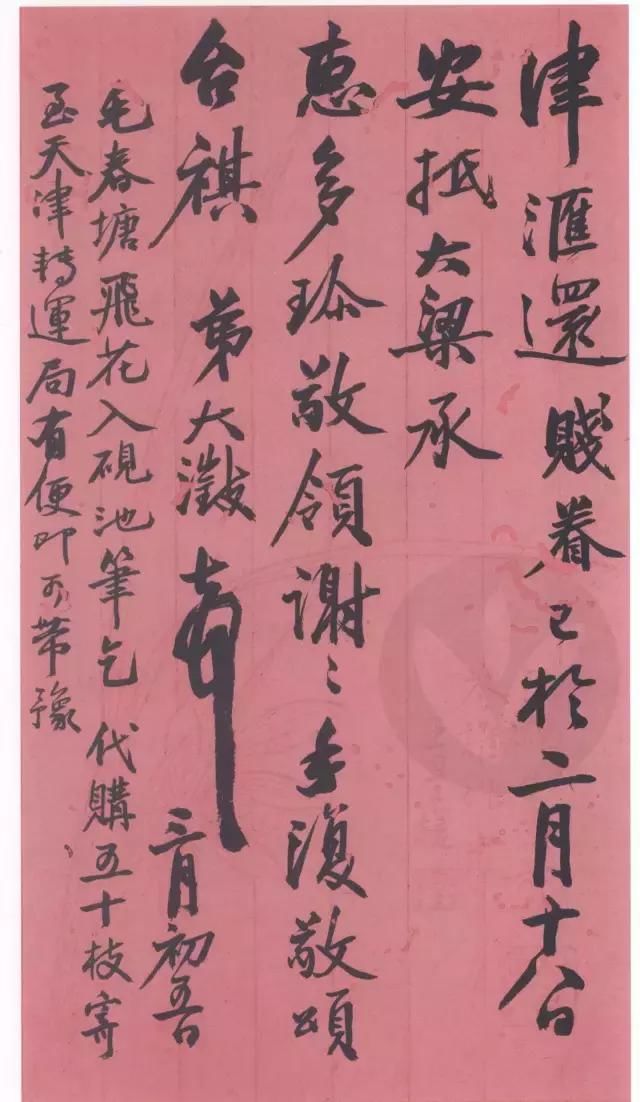 津滙還賤眷已於二月十八日
安抵大梁承
惠多珍敬領謝〻手復敬頌
台祺 弟大澂頓首
三月初五日
毛春塘飛花入硯池筆乞代購五十枝寄
至天津轉運局有便即可帶豫